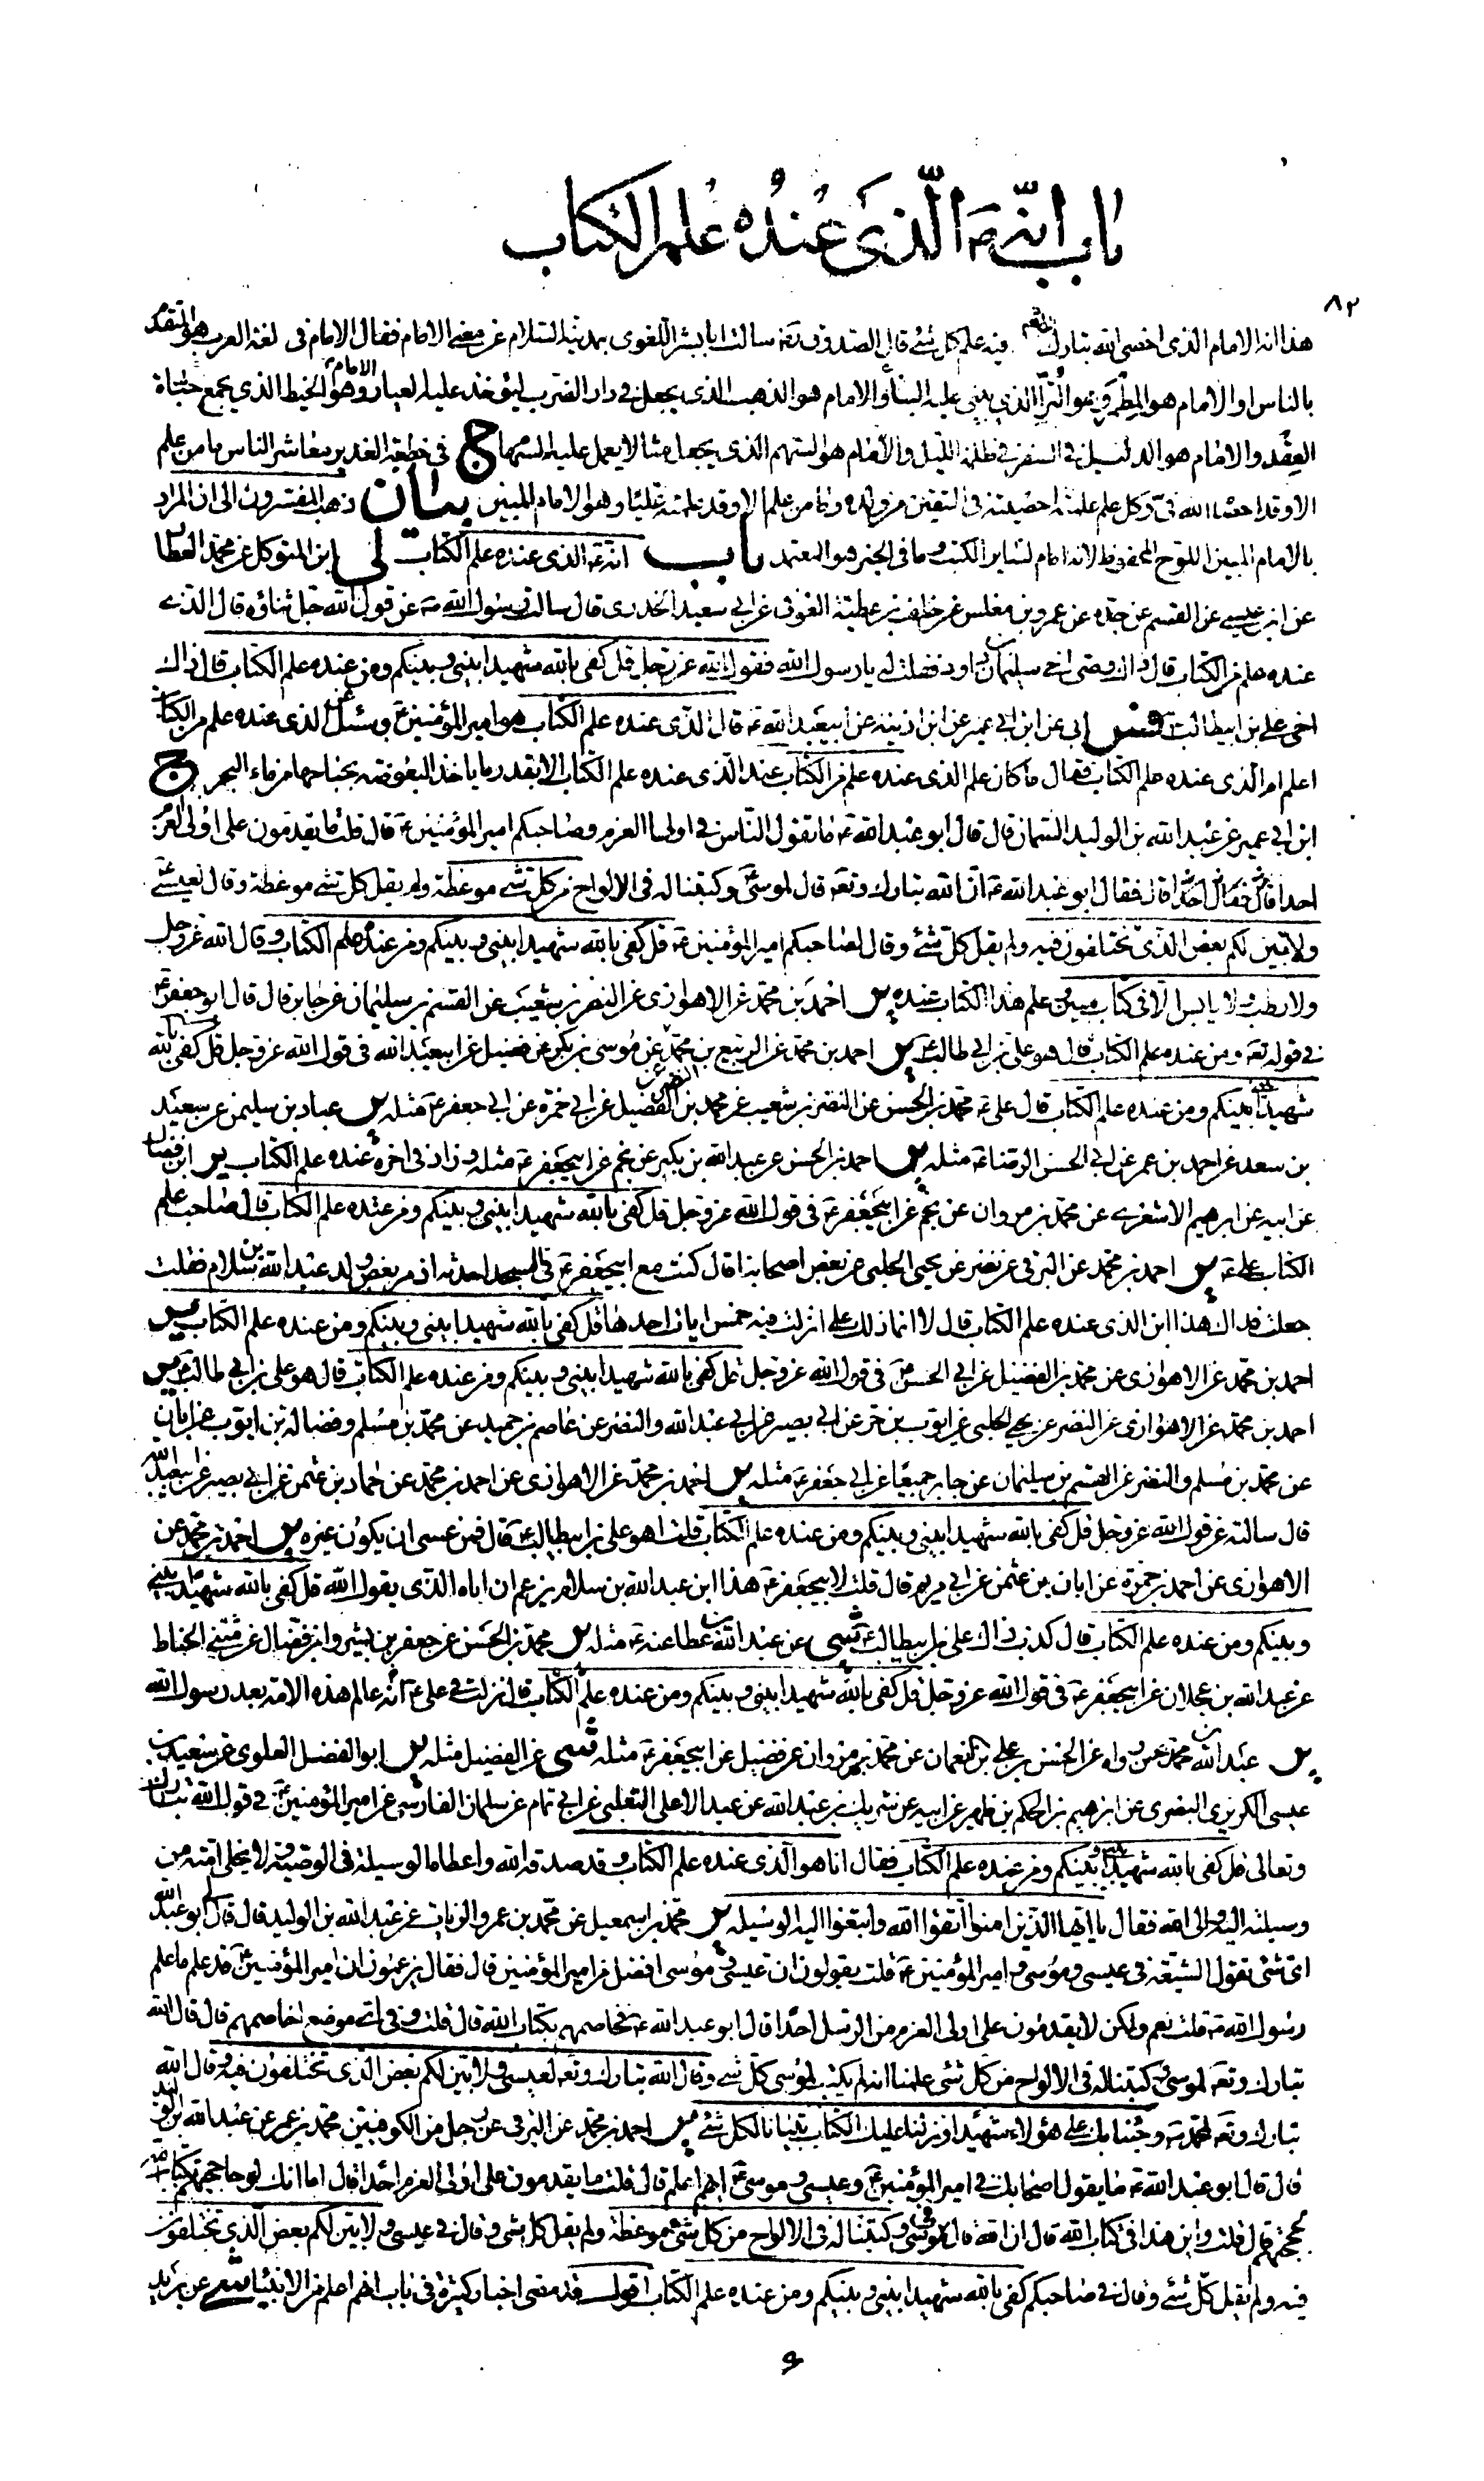 باب انه ع الذى عنده علم الكتاب
٨٢
هذا انه الامام الذى احصى الله تبارك وتعالى فيه علم كل شئ قال الصدوق ره سالت ابا بشر اللغوى بمدينة السلام عن معنى الامام فقال الامام فى لغة العرب هو المتقدم
بالناس والامام هو المطمر وهو التر الذى يبنى عليه البناء والامام هو الذهب الذى يجعل فى دار الضرب ليؤخذ عليه العيار والامام هو الخيط الذى يجمع حبات
العقد والامام هو الدليل فى السفر فى ظلمة الليل والامام هو السهم الذى يجعل مثالا يعمل عليه السهام ج فى خطبة الغدير معاشر الناس ما من علم
الا وقد احصاه الله فى وكل علم علمت احصيته فى المتقين من ولده وما من علم الا وقد علمته عليا وهو الامام المبين بيان ذهب المفسرون الى ان المراد
بالامام المبين اللوح المحفوظ لانه امام لساير الكتب وما فى الخبر هو المعتمد باب انه ع الذى عنده علم الكتاب لى ابن المتوكل عن محمد العطار
عن ابن عيسى عن القسم عن جده عن عمرو بن مغلس عن خلف بن عطية العوفى عن ابى سعيد الخدرى قال سالت رسول الله ص عن قول الله جل ثناؤه قال الذى
عنده علم من الكتاب قال ذاك وصى اخى سليمان بن داود فقلت له يا رسول الله فقول الله عز وجل قل كفى بالله شهيدا بينى وبينكم ومن عنده علم الكتاب قال ذاك
اخى على بن ابيطالب فس ابى عن ابن ابى عمير عن ابن اذينه عن ابيعبد الله ع قال الذى عنده علم الكتاب هو امير المؤمنين ع وسئل عن الذى عنده علم من الكتاب
اعلم ام الذى عنده علم الكتاب فقال ما كان علم الذى عنده علم من الكتاب عند الذى عنده علم الكتاب الا بقدر ما ياخذ البعوضة بجناحها من ماء البحر ج
ابن ابى عمير عن عبد الله بن الوليد السمان قال قال ابو عبد الله ع ما تقول الناس فى اولى العزم وصاحبكم امير المؤمنين ع قال قلت ما يقدمون على اولى العزم
احدا قال فقال ابو عبد الله ع ان الله تبارك وتعه قال لموسى ع وكتبنا له فى الالواح من كل شئ موعظة ولم يقل كل شئ موعظة وقال لعيسى ع
ولابين لكم بعض الذى تختلفون فيه ولم يقل كل شئ وقال لصاحبكم امير المؤمنين ع قل كفى بالله شهيدا بينى وبينكم ومن عنده علم الكتاب وقال الله عز وجل
ولا رطب ولا يابس الا فى كتاب مبين وعلم هذا الكتاب عنده ير احمد بن محمد عن الاهوازى عن النضر بن شعيب عن القسم بن سليمان عن جابر قال قال ابو جعفر ع
فى قوله تعه ومن عنده علم الكتاب قال هو على بن ابى طالب ع ير احمد بن محمد عن الربيع بن محمد عن موسى بن بكر عن فضيل عن ابيعبد الله فى قول الله عز وجل قل كفى بالله
شهيدا بينى وبينكم ومن عنده علم الكتاب قال على ع محمد بن الحسن عن النضر بن شعيب عن محمد بن الفضيل عن ابى حمزة عن ابى جعفر ع مثله ير عباد بن سليمن عن سعيد
بن سعد عن احمد بن عمر عن ابى الحسن الرضا ع مثله ير احمد بن الحسن عن عبد الله بن بكير عن نجم عن ابيجعفر ع مثله وزاد فى اخره عنده علم الكتاب ير ابن فضال
عن ابيه عن ابرهيم الاشعرى عن محمد بن مروان عن نجم عن ابيجعفر ع فى قول الله عز وجل قل كفى بالله شهيدا بينى وبينكم ومن عنده علم الكتاب قال صاحب علم
الكتاب على ع ير احمد بن محمد عن البرقى عن نضر عن يحيى الحلبى عن بعض اصحابنا قال كنت مع ابيجعفر ع فى المسجد احدثه اذ مر بعض ولد عبد الله بن سلام فقلت
جعلت فداك هذا ابن الذى عنده علم الكتاب قال لا انما ذلك على انزلت فيه خمس ايات احدها قل كفى بالله شهيدا بينى وبينكم ومن عنده علم الكتاب ير
احمد بن محمد عن الاهوازى عن محمد بن الفضيل عن ابى الحسن ع فى قول الله عز وجل قل كفى بالله شهيدا بينى وبينكم ومن عنده علم الكتاب قال هو على بن ابى طالب ع ير
احمد بن محمد عن الاهوازى عن النضر عن يحيى الحلبى عن ايوب بن حر عن ابى بصير عن ابى عبد الله والنضر عن عاصم بن حميد عن محمد بن مسلم وفضالة بن ايوب عن ابان
عن محمد بن مسلم والنضر عن القسم بن سليمان عن جابر جميعا عن ابى جعفر ع مثله ير احمد بن محمد عن الاهوازى عن احمد بن محمد عن حماد بن عثمن عن ابى بصير عن ابيعبد الله
قال سالته عن قول الله عز وجل قل كفى بالله شهيدا بينى وبينكم ومن عنده علم الكتاب قلت اهو على بن ابيطالب ع قال فمن عسى ان يكون غيره ير احمد بن محمد عن
الاهوازى عن احمد بن حمزة عن ابان بن عثمن عن ابى مريم قال قلت لابيجعفر ع هذا ابن عبد الله بن سلام يزعم ان اباه الذى يقول الله قل كفى بالله شهيدا بينى
وبينكم ومن عنده علم الكتاب قال كذب ذاك على بن ابيطالب ع شى عن عبد الله بن عطا عنه ع مثله ير محمد بن الحسن عن جعفر بن بشير وابن فضال عن مثنى الحناط
عن عبد الله بن عجلان عن ابيجعفر ع فى قول الله عز وجل قل كفى بالله شهيدا بينى وبينكم ومن عنده علم الكتاب قال نزلت فى على ع انه عالم هذه الامة بعد رسول الله
ير عبد الله بن محمد عن رواه عن الحسن بن على بن النعمان عن محمد بن مروان عن فضيل عن ابيجعفر ع مثله شى عن الفضيل مثله ير ابو الفضل العلوى عن سعيد بن
عيسى الكريزى البصرى عن ابرهيم بن الحكم بن ظهير عن ابيه عن شريك بن عبد الله عن عبد الاعلى الثعلبى عن ابى تمام عن سلمان الفارسى عن امير المؤمنين ع فى قول الله تبارك
وتعالى قل كفى بالله شهيدا بينى وبينكم ومن عنده علم الكتاب فقال انا هو الذى عنده علم الكتاب وقد صدقه الله واعطاه الوسيلة فى الوصية ولا يخلى امته من
وسيلته اليه والى الله فقال يا ايها الذين امنوا اتقوا الله وابتغوا اليه الوسيله ير محمد بن اسمعيل عن محمد بن عمرو الزيات عن عبد الله بن الوليد قال قال لى ابو عبد الله
اى شئ تقول الشيعة فى عيسى وموسى وامير المؤمنين ع قلت يقولون ان عيسى وموسى افضل من امير المؤمنين قال فقال يزعمون ان امير المؤمنين ع قد علم ما علم
رسول الله ص قلت نعم ولكن لا يقدمون على اولى العزم من الرسل احدا قال ابو عبد الله ع فخاصمهم بكتاب الله قال قلت وفى اى موضع اخاصمهم قال قال الله
تبارك وتعه لموسى وكتبنا له فى الالواح من كل شئ علمنا انه لم يكتب لموسى كل شئ وقال الله تبارك وتعه لعيسى ولابين لكم بعض الذى تختلفون فيه وقال الله
تبارك وتعه لمحمد ص وجئنا بك على هؤلاء شهيدا ونزلنا عليك الكتاب تبيانا لكل شئ ير احمد بن محمد عن البرقى عن رجل من الكوفيين محمد بن عمر عن عبد الله بن الوليد
قال قال ابو عبد الله ع ما يقول اصحابك فى امير المؤمنين ع وعيسى وموسى ع ايهم اعلم قال قلت ما يقدمون على اولى العزم احدا قال اما انك لو حاججتهم بكتاب الله
لحججتهم قال قلت واين هذا فى كتاب الله قال ان الله قال فى موسى وكتبنا له فى الالواح من كل شئ موعظة ولم يقل كل شئ وقال فى عيسى ولابين لكم بعض الذى تختلفون
فيه ولم يقل كل شئ وقال فى صاحبكم كفى بالله شهيدا بينى وبينكم ومن عنده علم الكتاب اقول قد مضى اخبار كثيرة فى باب انهم اعلم من الانبياء شى عن بريد
و